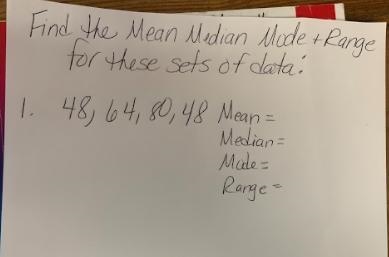 Find the Mean Median Mode + Range
for these sets of data:
1. 48, 64, 80, 48 Mean =
Median =
Mode =
Range =